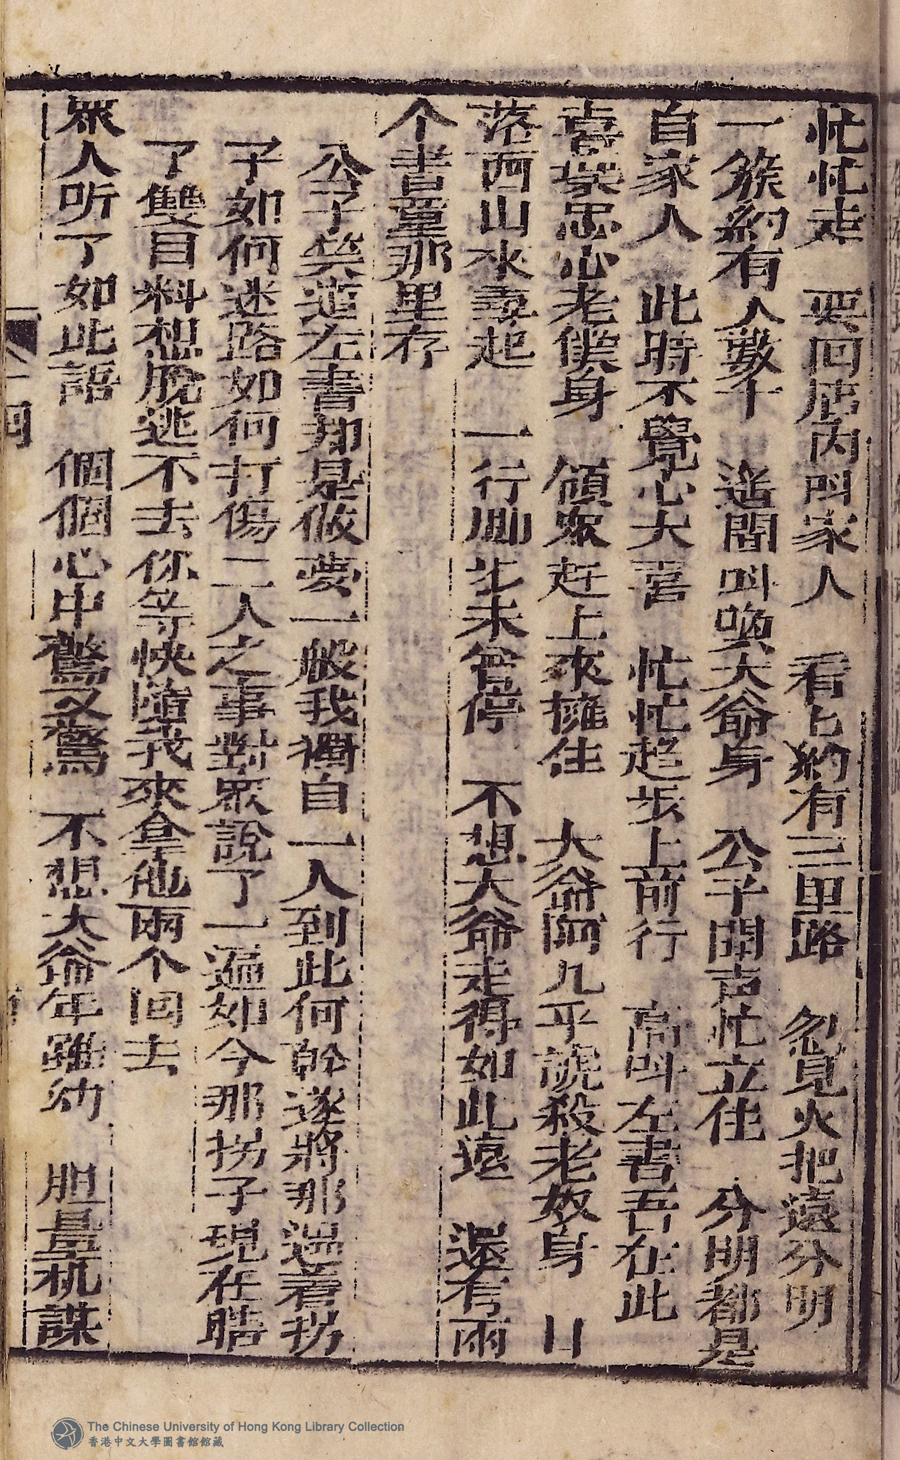 忙忙走　要回店内叫家人　看匕約有三里路　忽見火把遠分明
一簇約有人數十　遙聞叫喚大爺身　公子開声忙立住　分明都是
自家人　此時不覺心大喜　忙忙趋步上前行　高叫左書吾在此
喜哭忠心老僕身　領眾赶上來擁住　大爺阿几乎諕殺老奴身　日
落西山水尋起　一行脚步未曾停　不想大爺走得如此遠　還有兩
个書童那里存
公子笑道左書却是做夢一般我獨自一人到此何幹遂將那遇着拐
子如何迷路如何打傷二人之事對眾說了一遍如今那拐子現在瞎
了雙目料想脫逃不去你等快隨我來拿他兩个回去
眾人听了如此語　個個心中驚又驚　不想大爺年雖幼　胆量机謀
四
The Chinese University of Hong Kong Library Collection
香港中文大學圖書館館藏